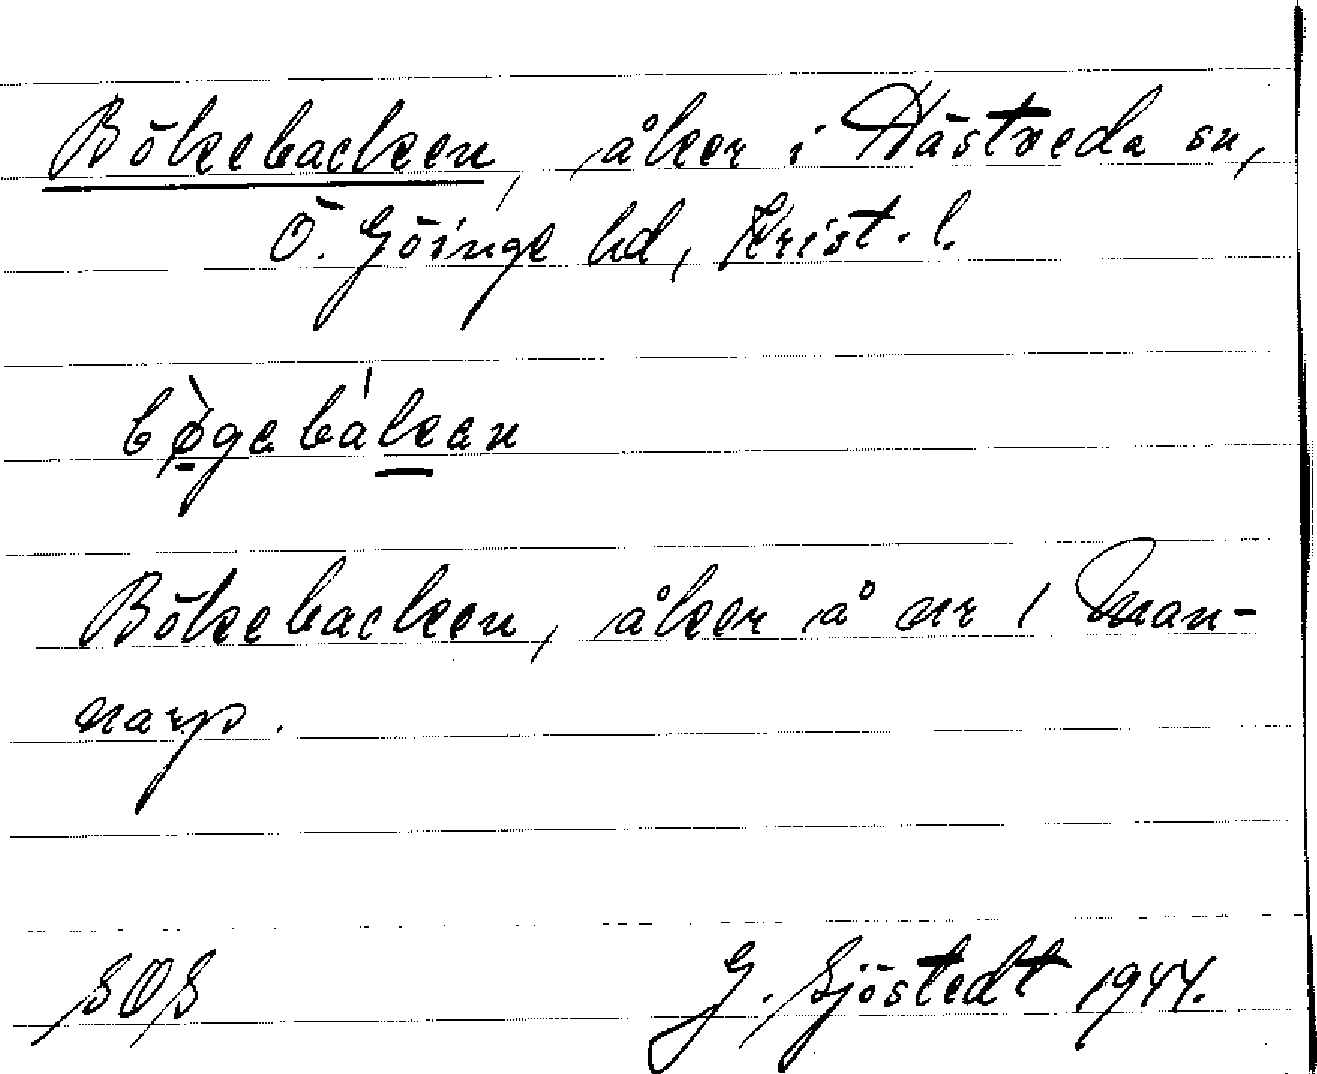 Bökebacken, åker i Hästveda sn,
Ö. Göinge hd, Krist. l.
bø̀gebákan
Bökebacken, åker å nr 1 Man-
narp.
SOS G. Sjöstedt 1944.